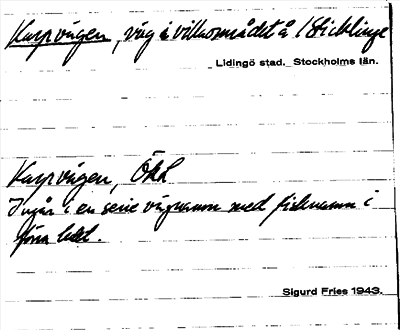 Karpvägen, väg i villaområdet å Sticklinge
Lidingö stad. Stockholms län.
Karpvägen, ÖkL
Ingår i en serie vägnamn med fisknamn i
förra leden.
Sigurd Fries 1943.